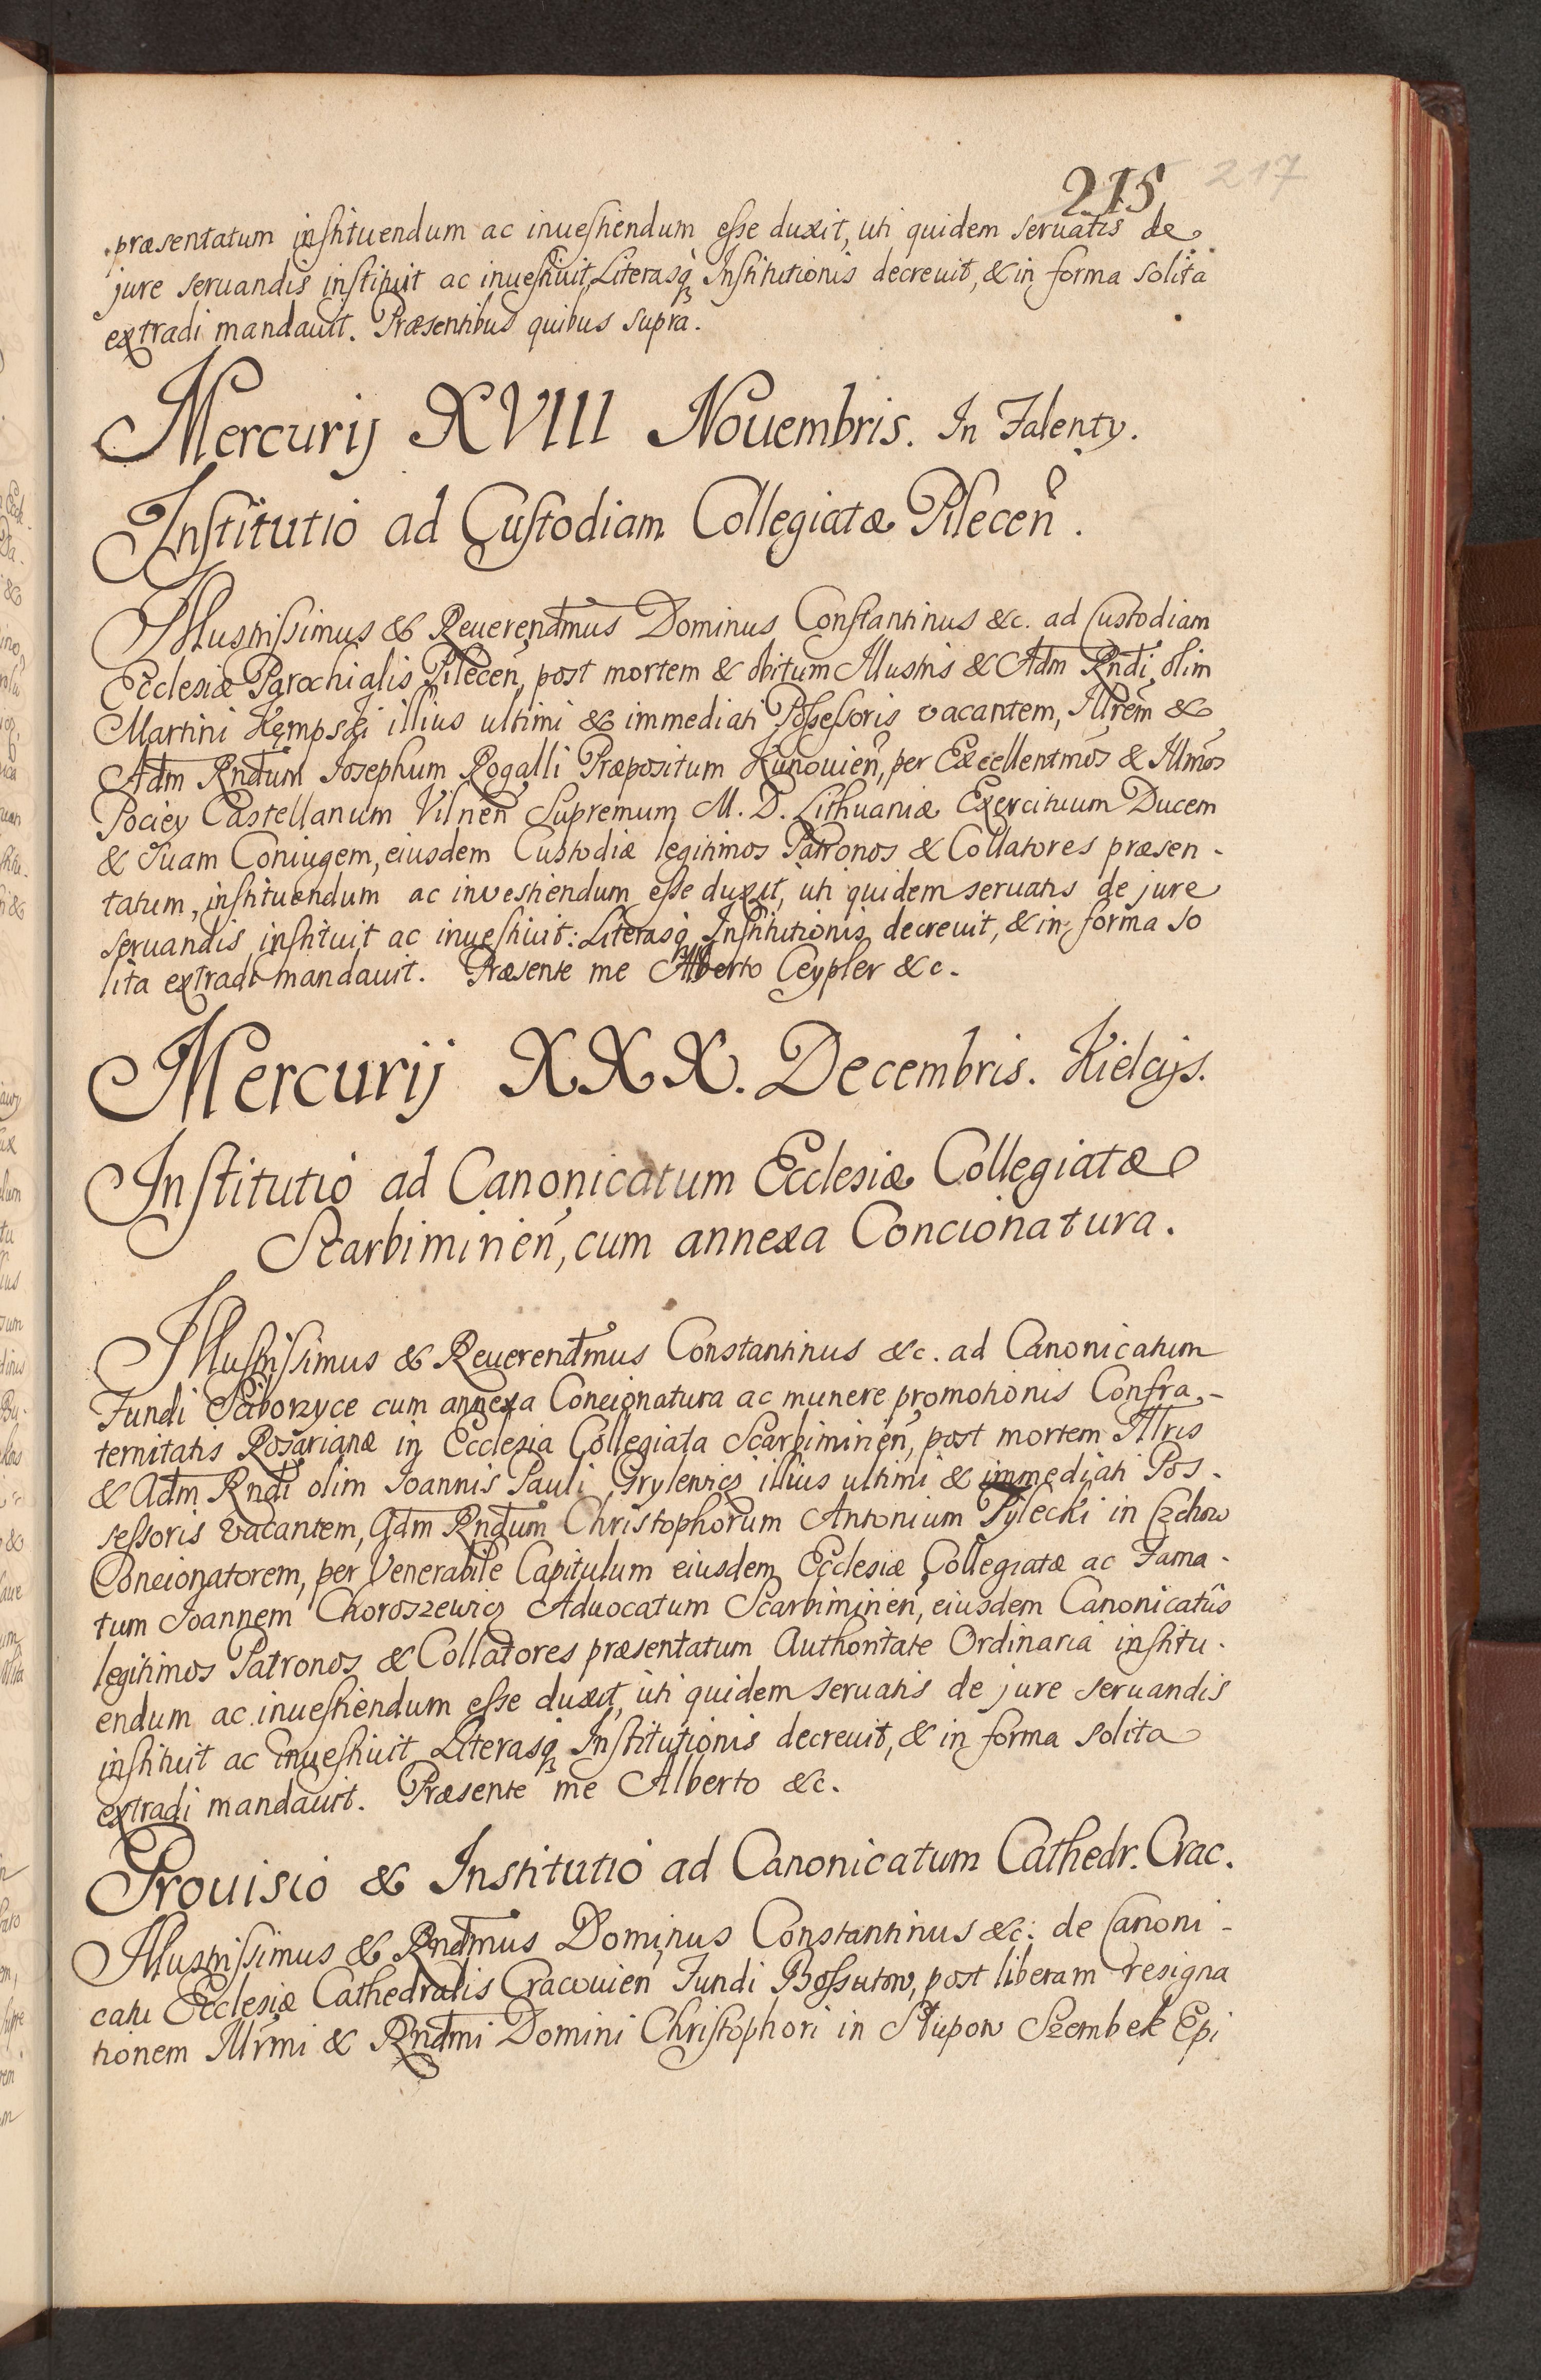 215 217
præsentatum instituendum ac inuestiendum esse duxit, uti quidem seruatis de
jure seruandis instituit ac inuestiuit, Literasq́ Institutionis decreuit, & in forma solita
extradi mandauit. Præsentibus quibus supra.
Mercurij XVIII Nouembris. In Falenty.
Institutio ad Custodiam Collegiatæ Pilecen̄.
Illustrissimus & Reuerendm̄us Dominus Constantinus &c. ad Custodiam
Ecclesiæ Parochialis Pilecen̄, post mortem & obitum Illustris & Adm̄ Rndi olim
Martini Kępski illius ultimi & immediati Possessoris vacantem, Illrēm &
Adm̄ Rndum Josephum Rogalli Præpositum Kunouien̄, per Excellentm̄os & Illm̄os
Pociey Castellanum Vilnen̄ Supremum M. D. Lithuaniæ Exercituum Ducem
& Suam Coniugem, eiusdem Custodiæ legitimos Patronos & Collatores præsen-
tatum, instituendum ac investiendum esse duxit, uti quidem seruatis de jure
seruandis instituit ac inuestiuit: Literasq́ Institutionis decreuit, & in forma so
lita extradi mandauit. Præsente me Alberto Ceypler &c.
Mercurij XXX. Decembris. Kielcijs.
Institutio ad Canonicatum Ecclesiæ Collegiatæ
Scarbimirien̄, cum annexa Concionatura.
Illustrissimus & Reuerendm̄us Constantinus &c. ad Canonicatum
Fundi Sciborzyce cum annexa Concionatura ac munere promotionis Confra-
ternitatis Rosarianæ in Ecclesia Collegiata Scarbimirien̄, post mortem Illris
& Adm̄ Rndi olim Joannis Pauli Grylewicz illius ultimi & immediati Pos-
sessoris vacantem, Adm̄ Rndum Christophorum Antonium Pylecki in Czchow
Concionatorem, per Venerabile Capitulum eiusdem Ecclesiæ Collegiatæ ac Fama-
tum Joannem Choroszewicz Aduocatum Scarbimirien̄, eiusdem Canonicatûs
legitimos Patronos & Collatores præsentatum Authoritate Ordinaria institu-
endum ac inuestiendum esse duxit, uti quidem seruatis de jure seruandis
instituit ac inuestiuit Literasq́ Institutionis decreuit, & in forma solita
extradi mandauit. Præsente me Alberto &c.
Prouisio & Institutio ad Canonicatum Cathedr. Crac.
Illustrissimus & Rndm̄us Dominus Constantinus &c: de Canoni-
catu Ecclesiæ Cathedralis Cracouien̄ Fundi Bossutow, post liberam resigna
tionem Illrmi & Rndm̄i Domini Christophori in Słupow Szembek Epi